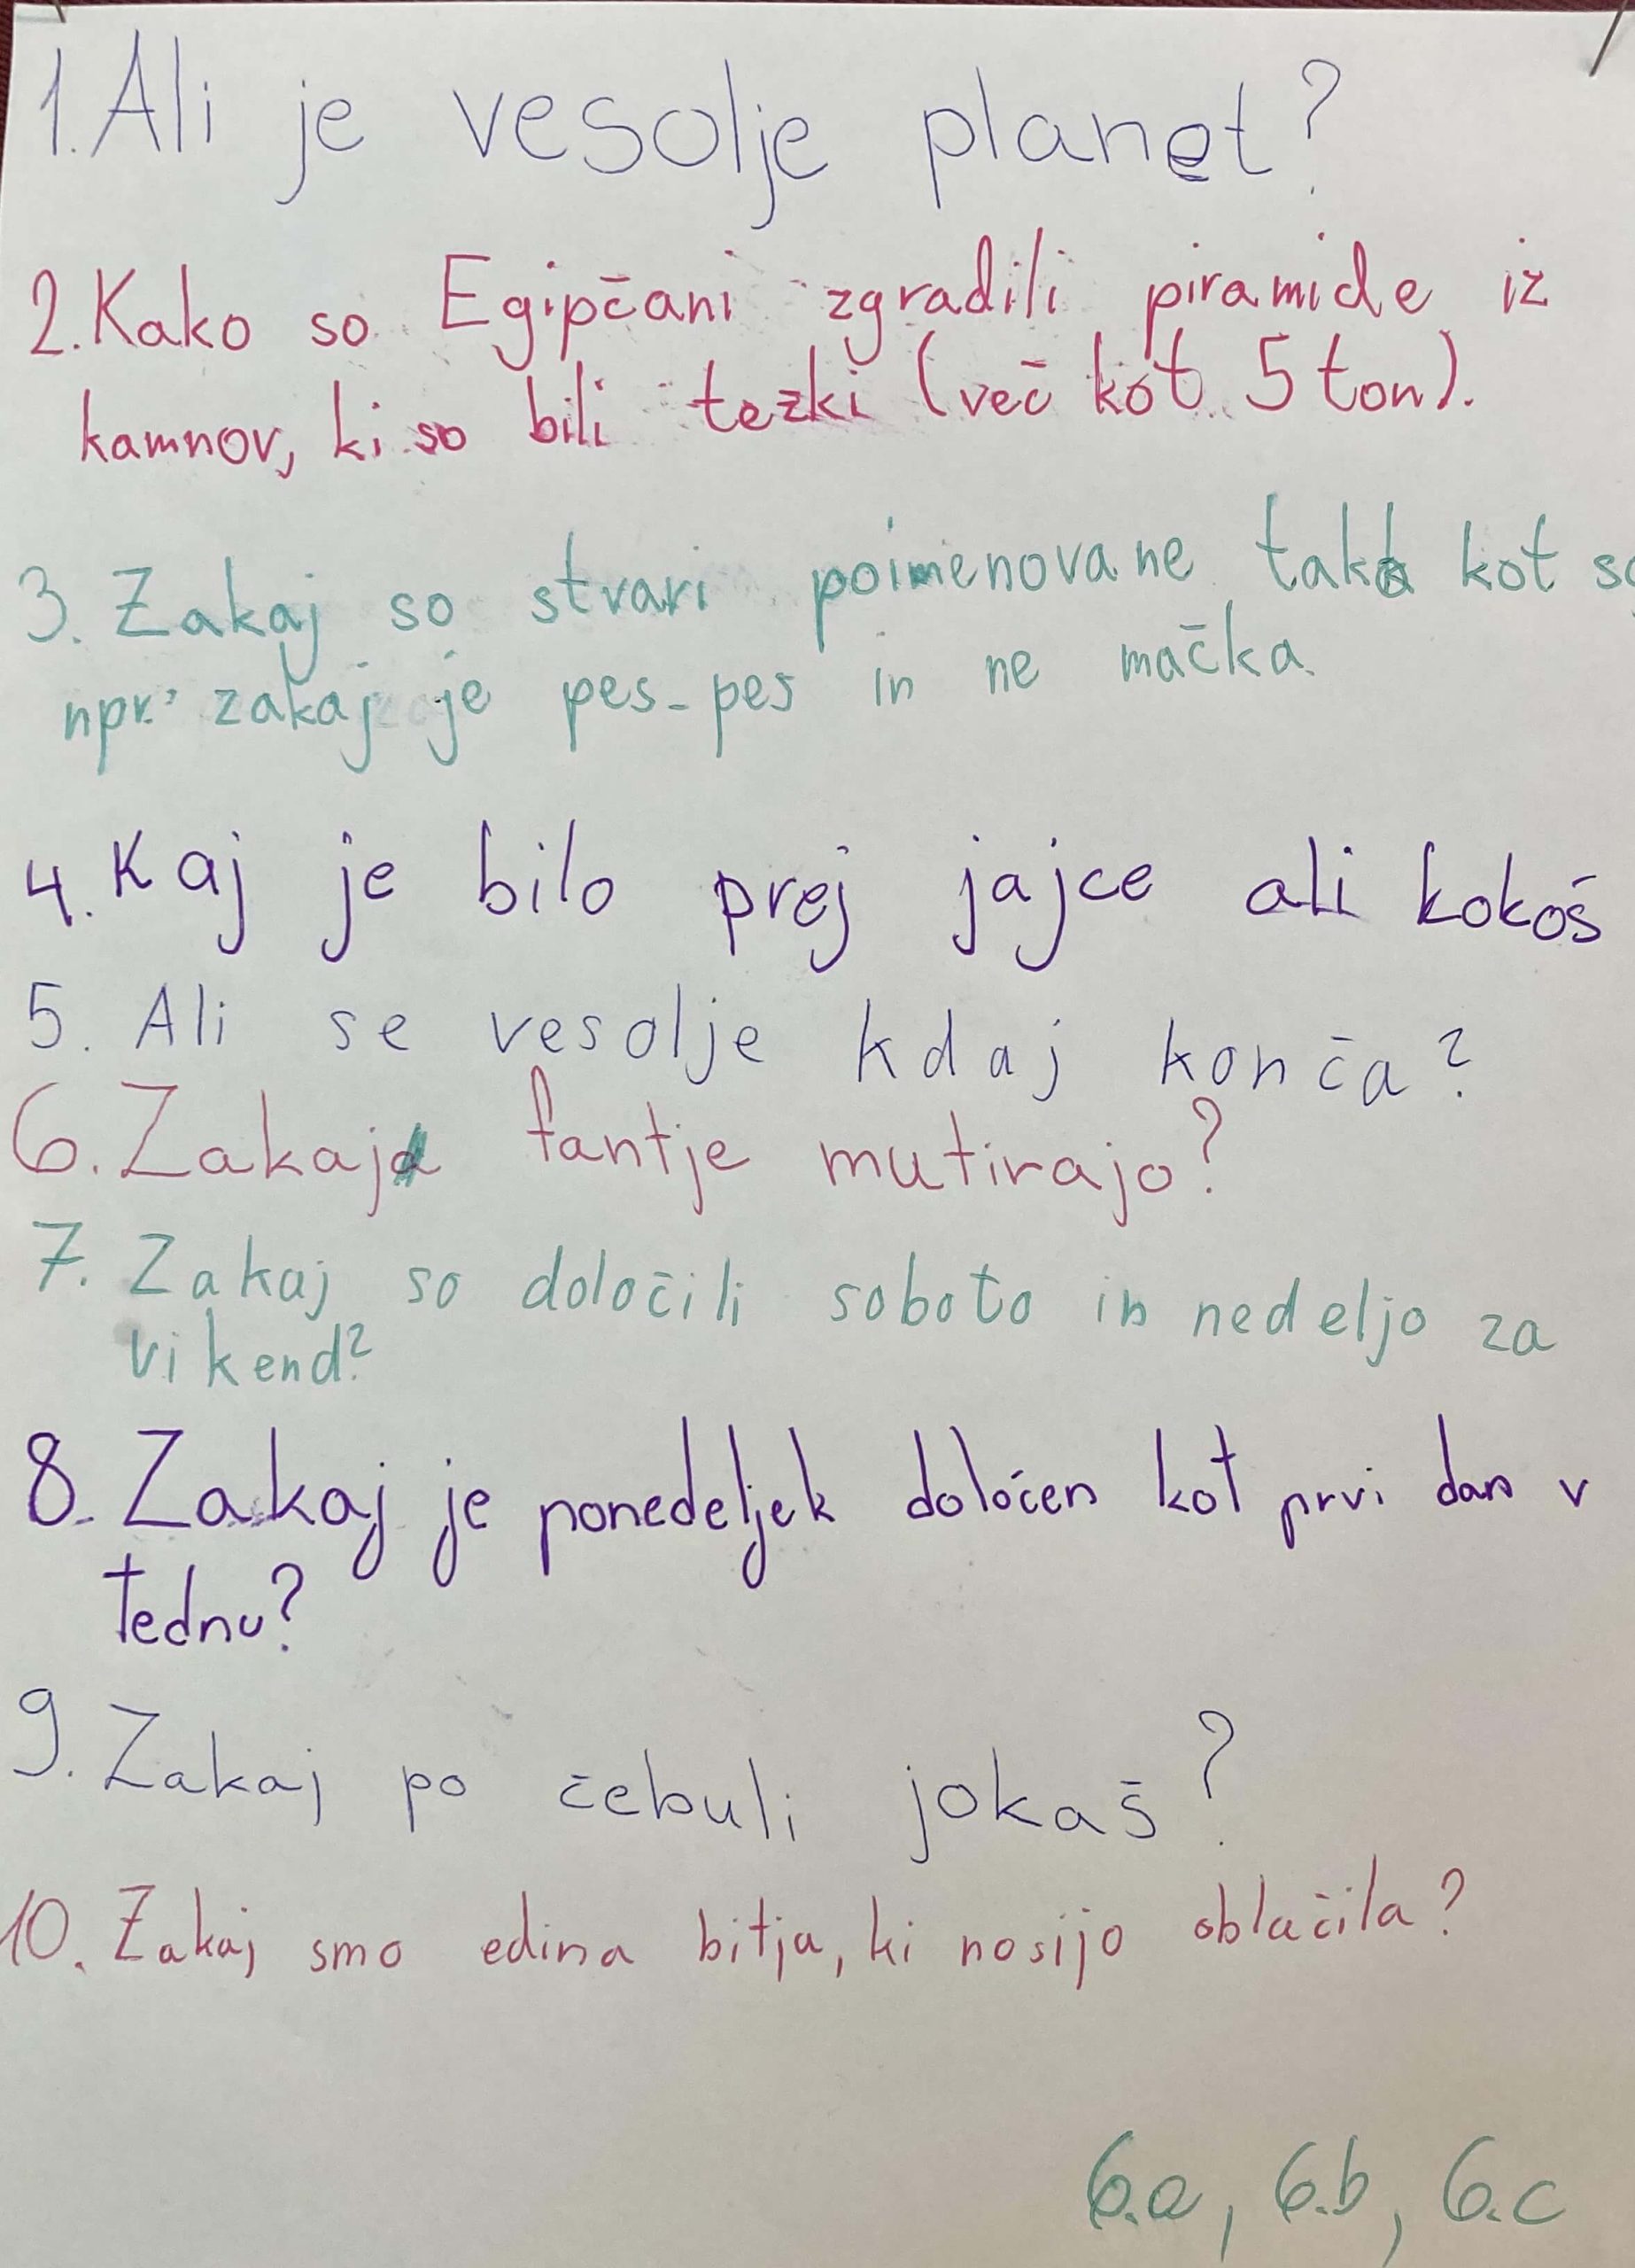 1. Ali je vesolje planet?
2. Kako so Egipčani zgradili piramide iz
kamnov, ki so bili tezki (več kot 5 ton).
3. Zakaj so stvari poimenovane tako kot so
npr. zakaj je pes-pes in ne mačka
4. Kaj je bilo prej jajce ali kokoš
5. Ali se vesolje kdaj konča?
6. Zakaj fantje mutirajo?
7. Zakaj so določili soboto in nedeljo za
vikend?
8. Zakaj je ponedeljek določen kot prvi dan v
tednu?
9. Zakaj po čebuli jokaš?
10. Zakaj smo edina bitja, ki nosijo oblačila?
6.a, 6.b, 6.c